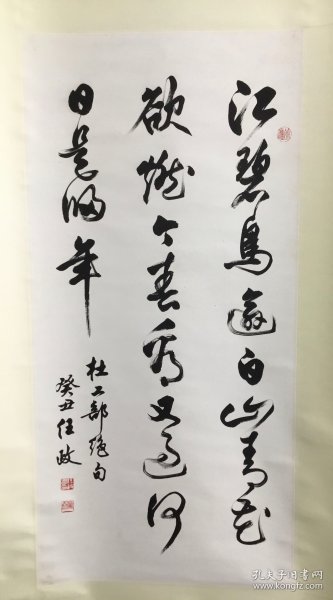 江碧鸟逾白山青花
欲燃今春看又过何
日是归年
杜工部绝句
癸丑任政
孔夫子旧书网
www.kongfz.com